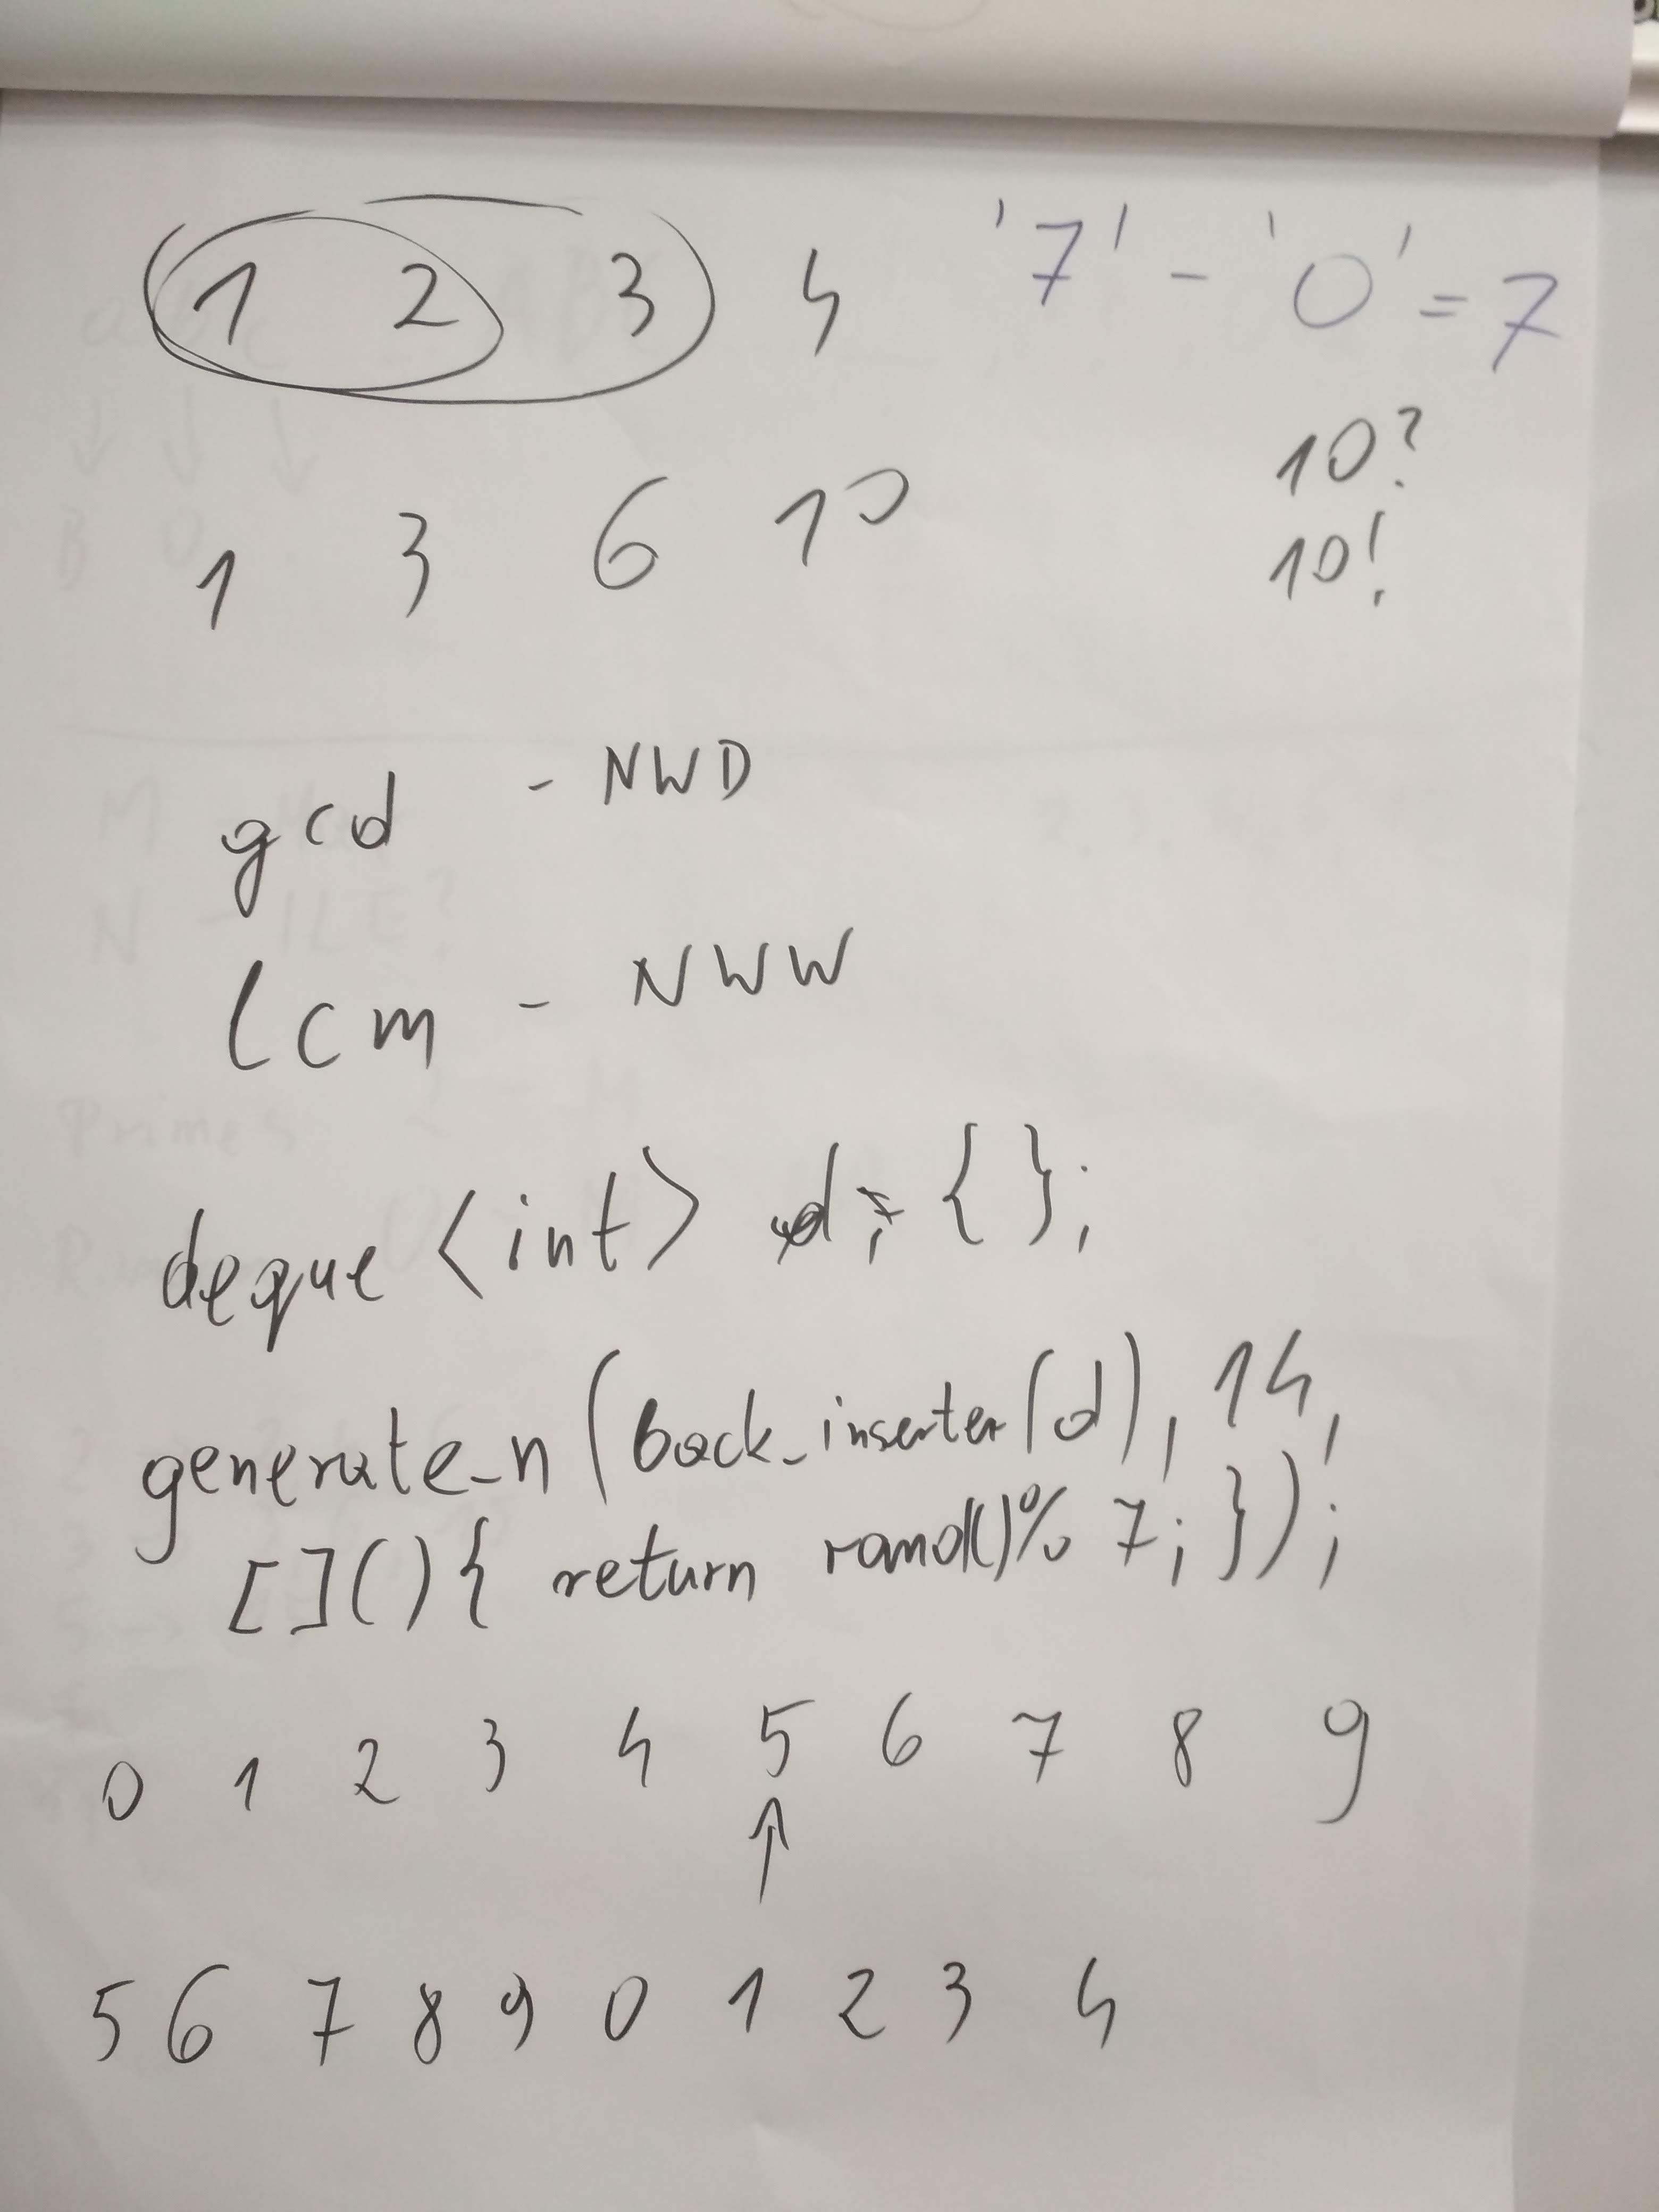 1 2 3 4 '7' - '0' = 7
10?
1 3 6 10
10!
gcd - NWD
lcm - NWW
deque <int> d = { };
generate_n (back_inserter(d), 14,
[](){ return rand()% 7; });
0 1 2 3 4 5 6 7 8 9
5 6 7 8 9 0 1 2 3 4